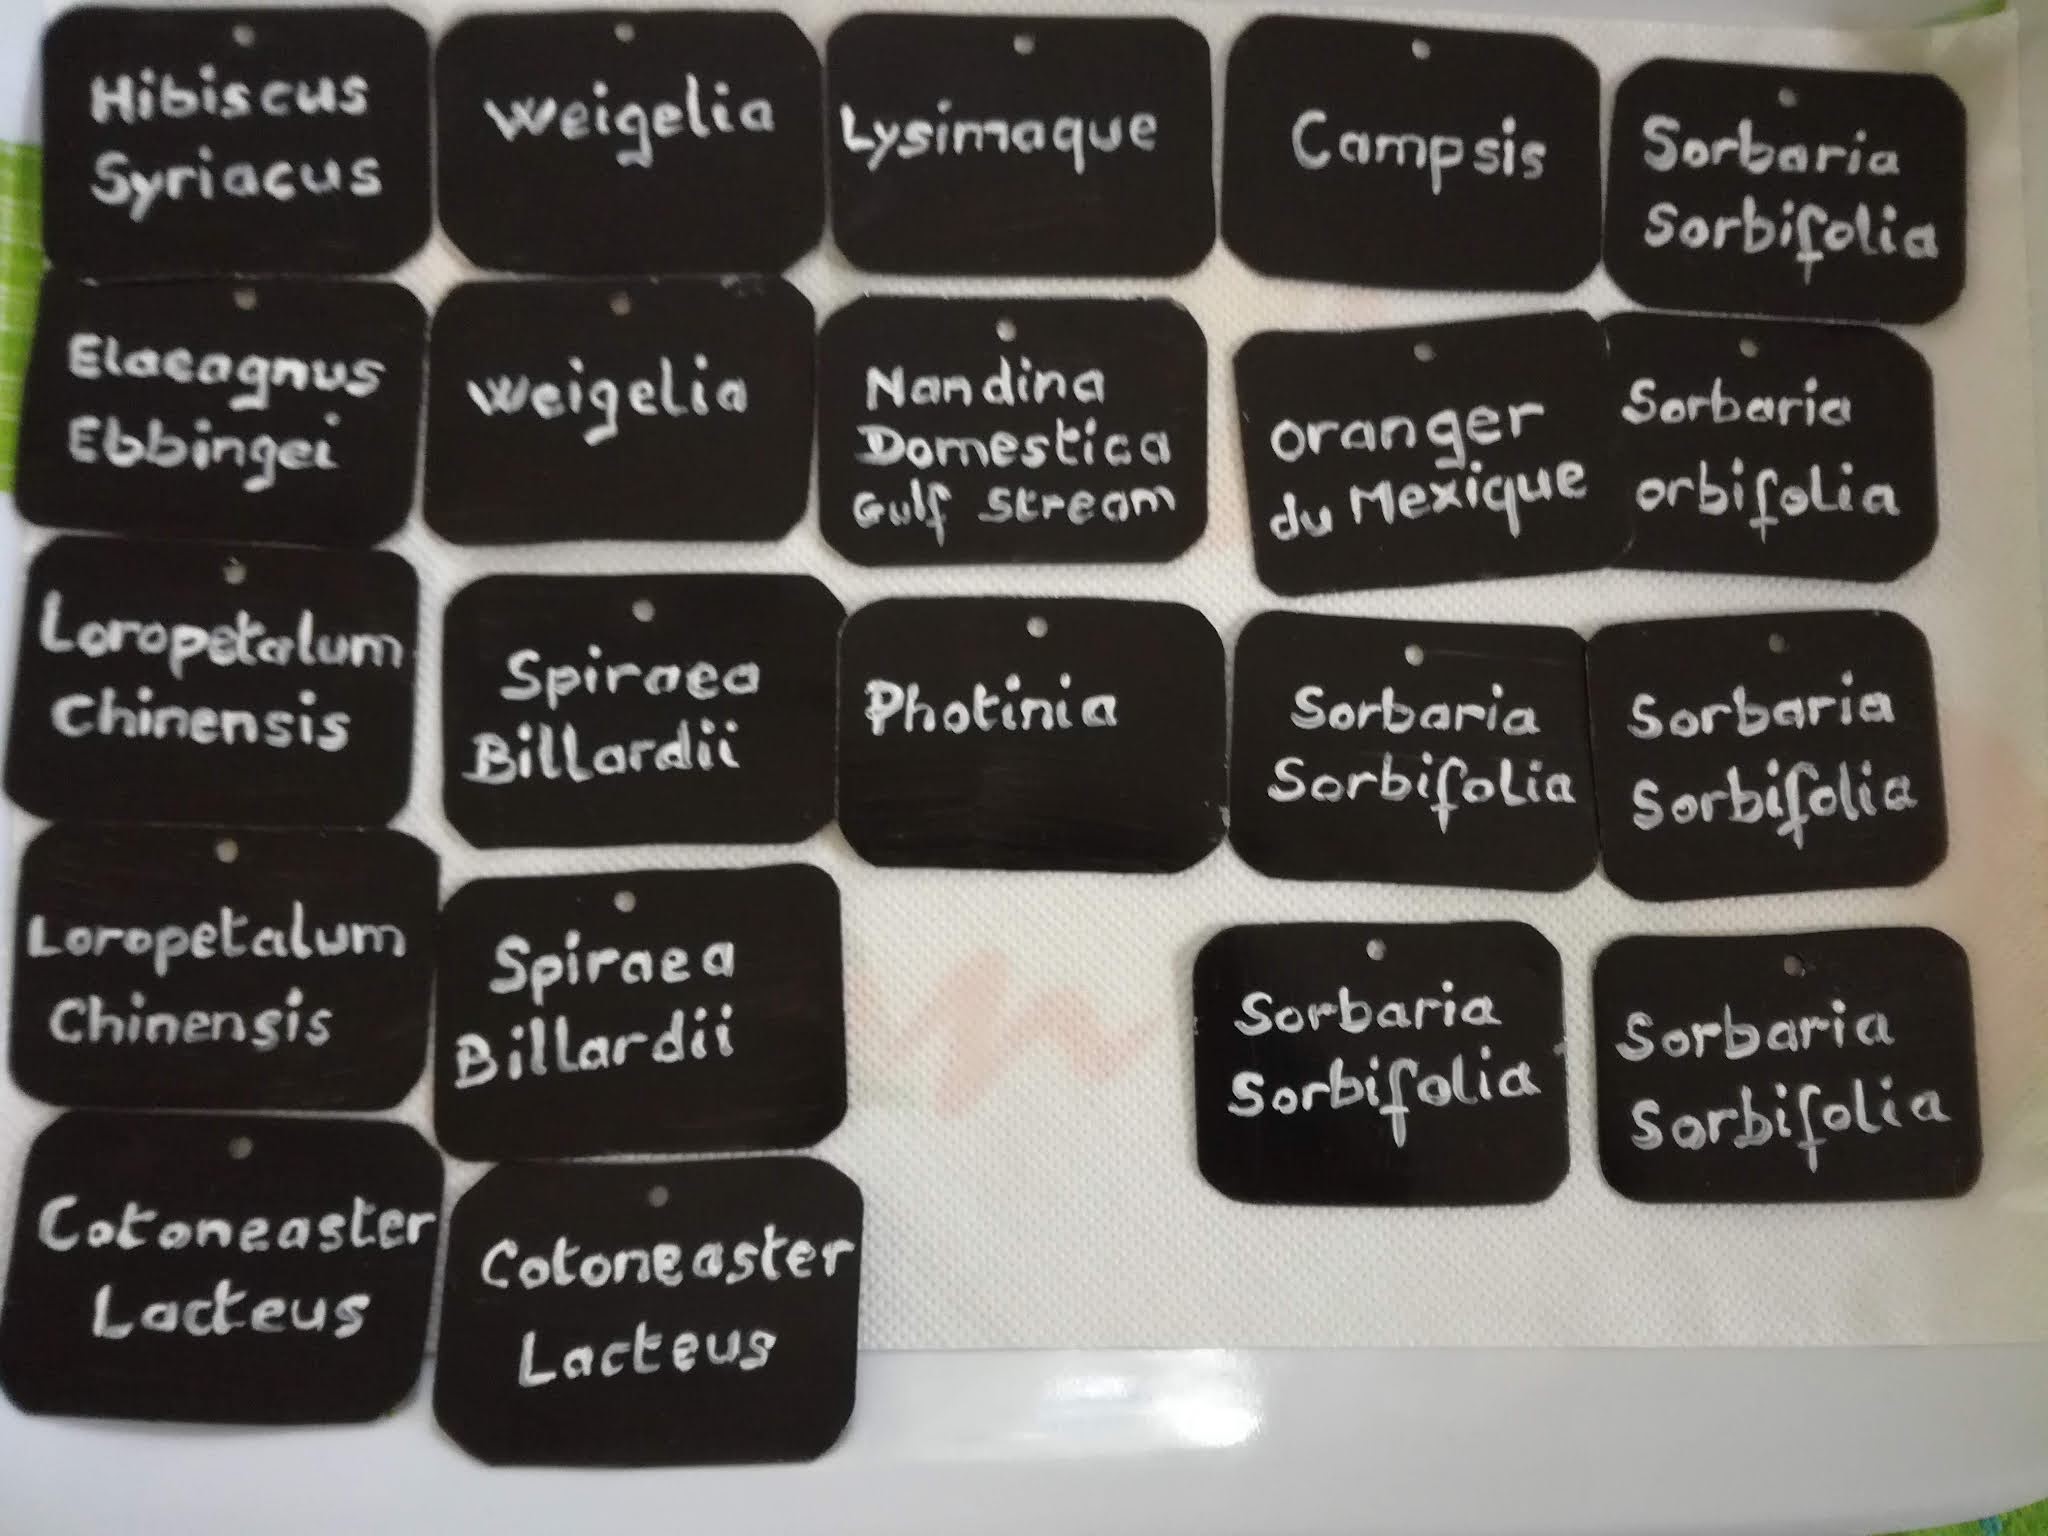 Hibiscus
Syriacus
Weigelia
Lysimaque
Campsis
Sorbaria
Sorbifolia
Elaeagnus
Ebbingei
Weigelia
Nandina
Domestica
Gulf Stream
oranger
du Mexique
Sorbaria
orbifolia
Loropetalum
Chinensis
Spiraea
Billardii
Photinia
Sorbaria
Sorbifolia
Sorbaria
Sorbifolia
Loropetalum
Chinensis
Spiraea
Billardii
Sorbaria
Sorbifolia
Sorbaria
Sorbifolia
Cotoneaster
Lacteus
Cotoneaster
Lacteus